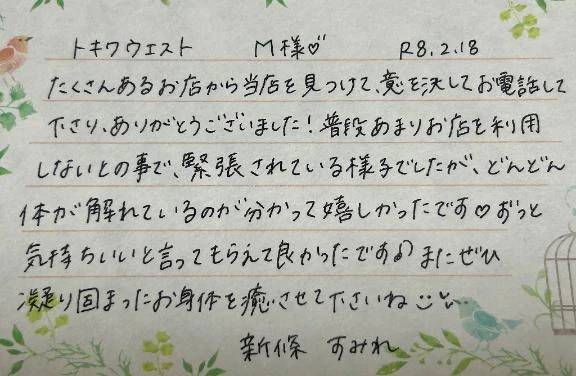 トキワウエスト M様♡ R8.2.18
たくさんあるお店から当店を見つけて、意を決してお電話して
下さり、ありがとうございました！普段あまりお店を利用
しないとの事で、緊張されている様子でしたが、どんどん
体が解れているのが分かって嬉しかったです♡ずっと
気持ちいいと言ってもらえて良かったです♪またぜひ
凝り固まったお身体を癒させて下さいね
新條 すみれ